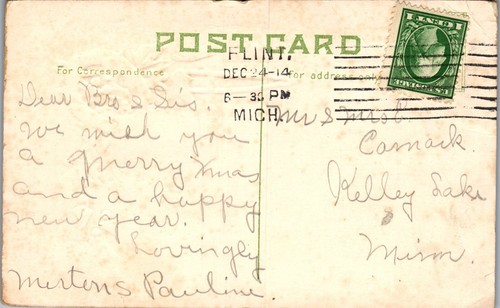 POST CARD
For Correspondence
For address only
FLINT.
DEC 24-14
6-30 PM
MICH.
Dear Bro & Sis.
we wish you
a merry Xmas
and a happy
new year.
Lovingly
Mertens Pauline.
Mr & Mrs
Comack.
Kelley Lake
Minn.